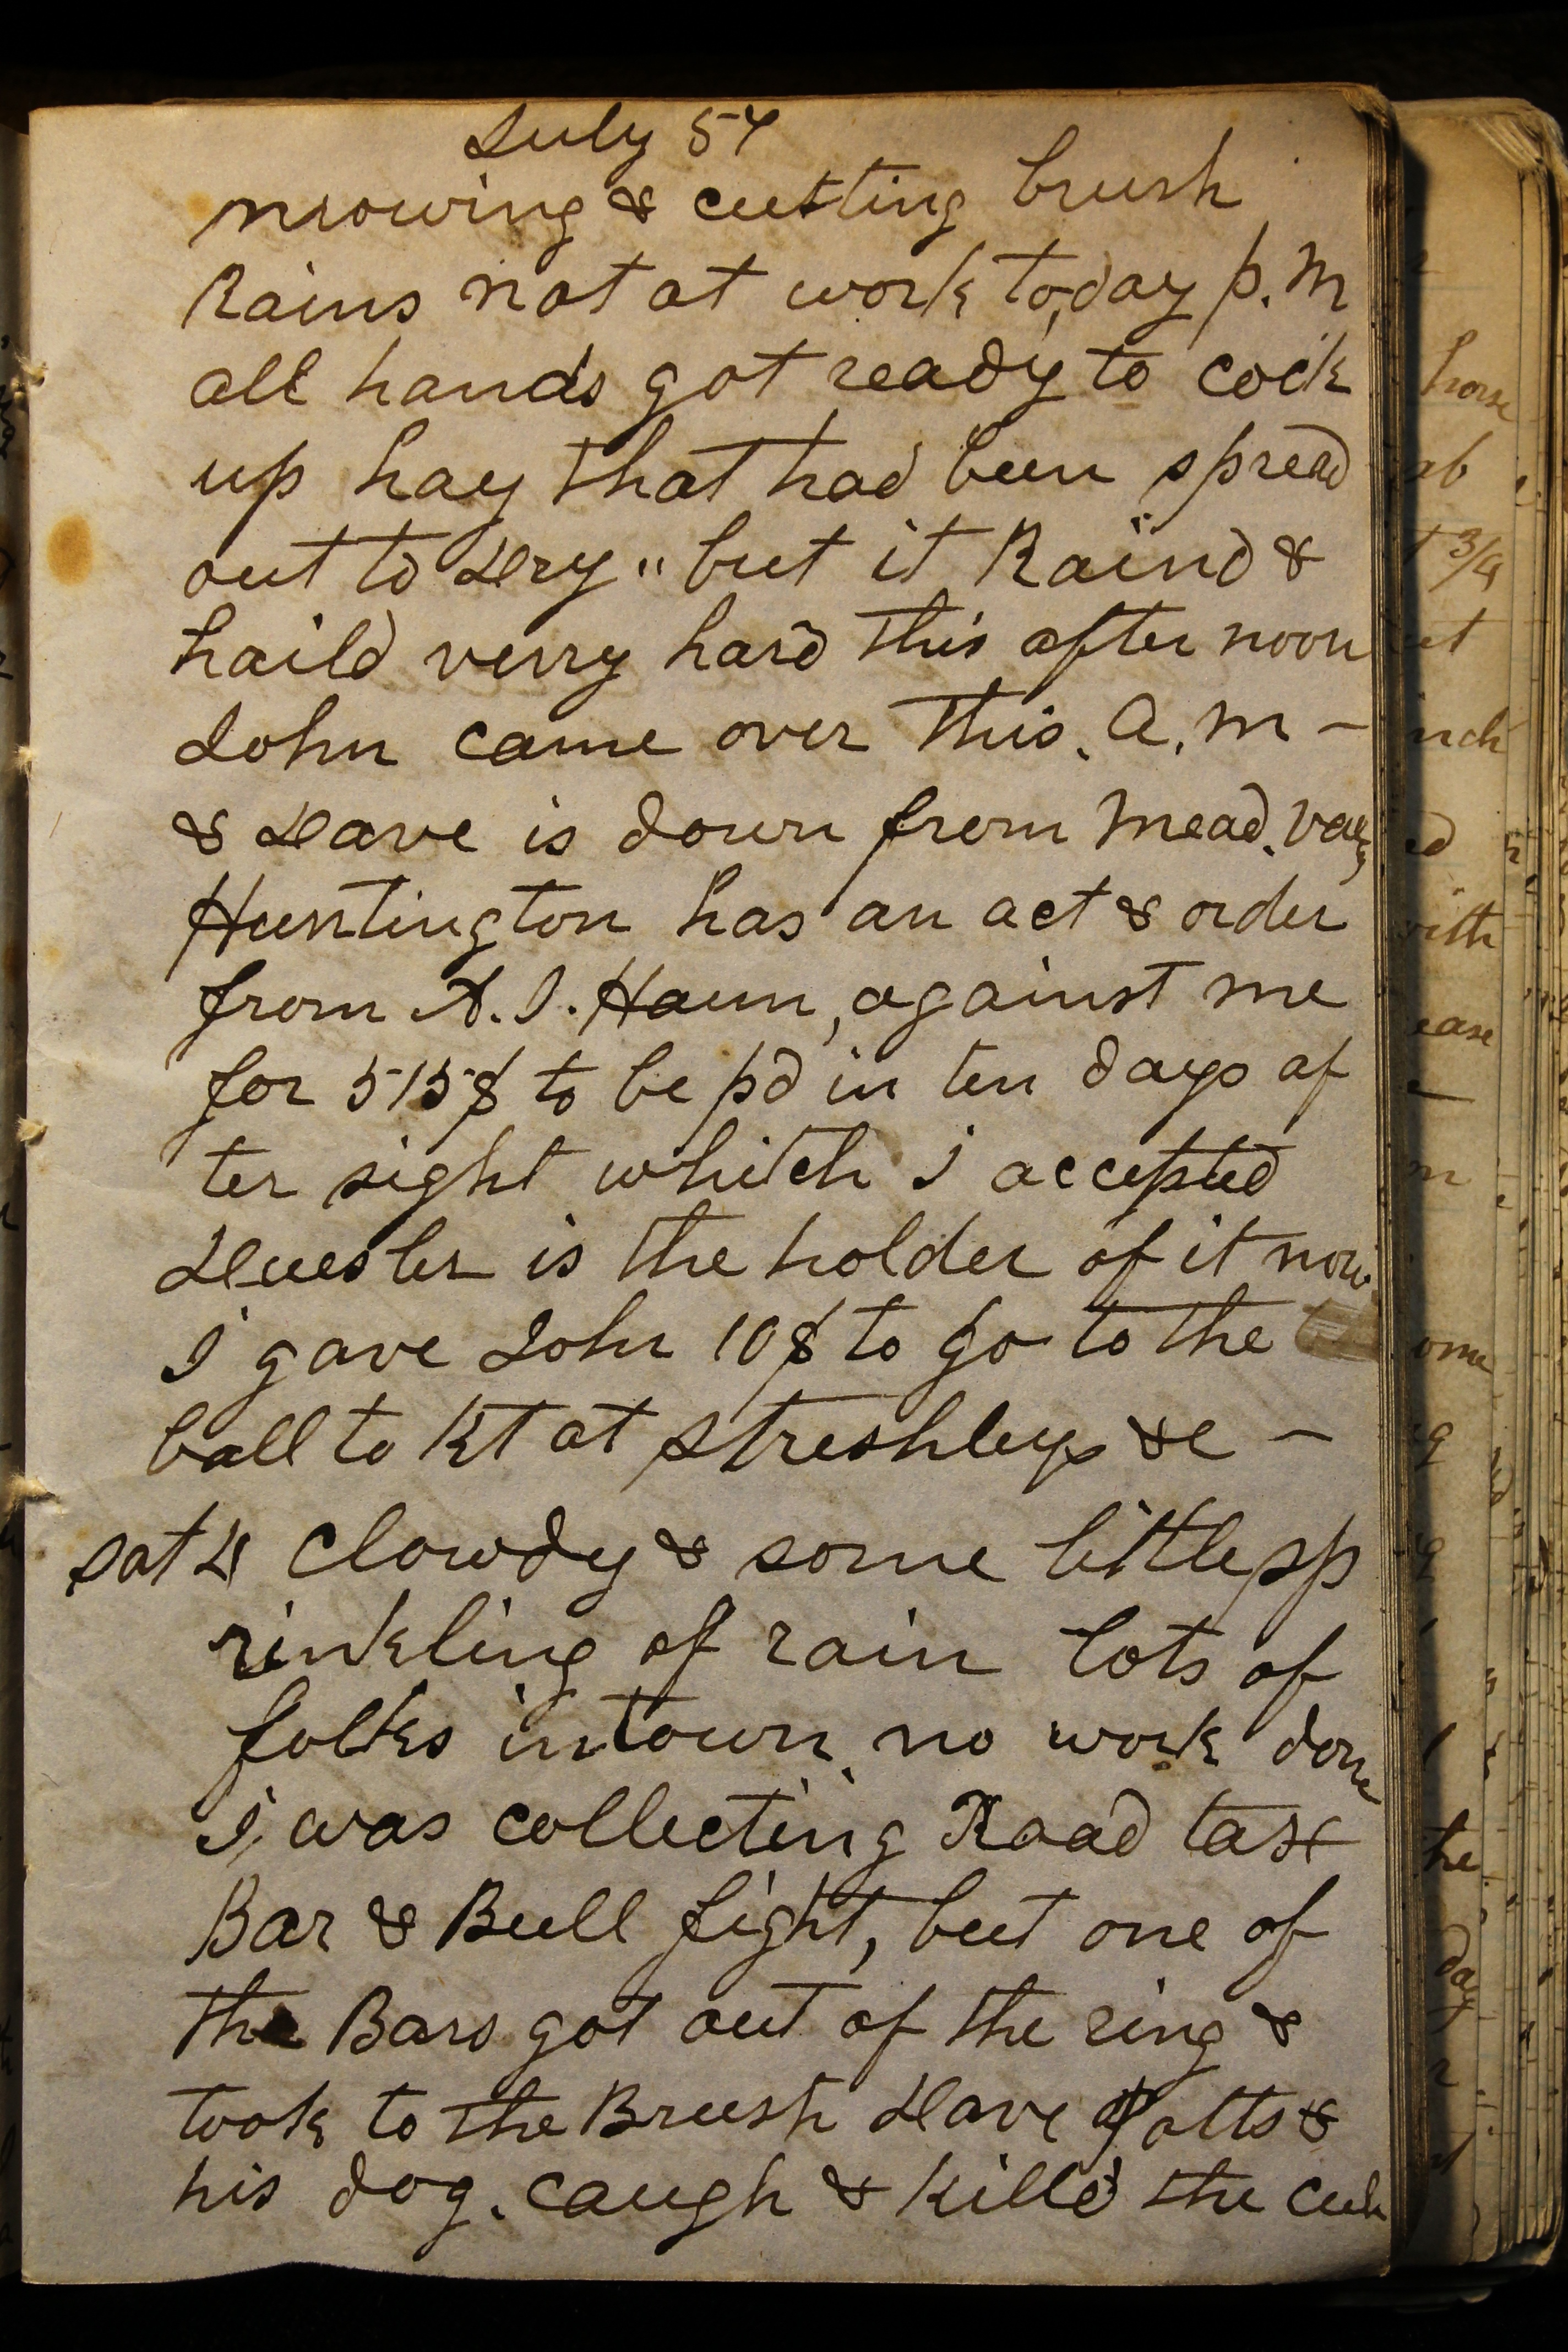 July 54
mowing & cutting brush
Rains not at work to,day p.m
all hands got ready to cock
up hay that had been spread
out to dry " but it Raind &
haild verry hard this after noon
John came over this. A.m -
& Dave is down from Mead. Valy
Huntington has an act & order
from A. J. Haun, against me
for 515$ to be pd in ten days af
ter sight whitch I accepted
is the holder of it now
I gave John 10$ to go to the
ball to Kt at Streshleys &c -
Sat 4 Clowdy & some little sp
rinkling of rain lots of
folks in town. no work done
I, was collecting Road tax
Bar & Bull fight, but one of
the Bars got out of the ring &
took to the Brush Dave Potts &
his dog. caugh & killd the cub
horse
ab
3/4
inch
ed
with
ease
m
ome
he
day